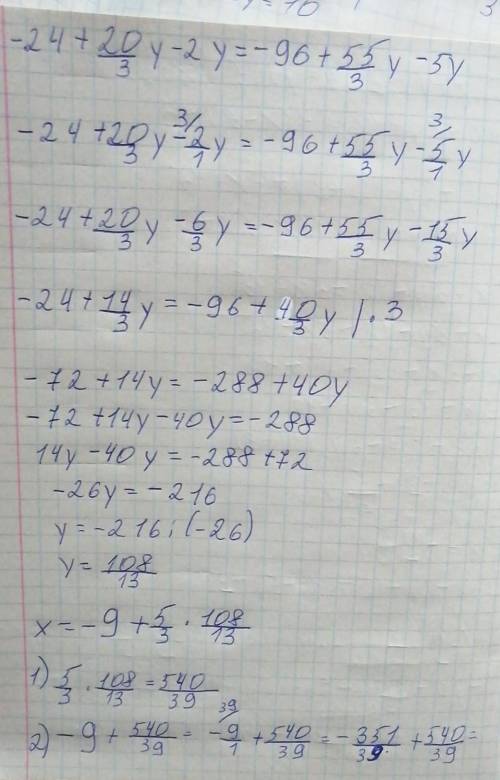 -24 + 20/3 y - 2y = -96 + 55/3 y - 5y
-24 + 20/3 y - 2/1 y 3/ = -96 + 55/3 y - 5/1 y 3/
-24 + 20/3 y - 6/3 y = -96 + 55/3 y - 15/3 y
-24 + 14/3 y = -96 + 40/3 y | · 3
-72 + 14y = -288 + 40y
-72 + 14y - 40y = -288
14y - 40y = -288 + 72
-26y = -216
y = -216 : (-26)
y = 108/13
x = -9 + 5/3 · 108/13
1) 5/3 · 108/13 = 540/39
2) -9 + 540/39 = 39/ -9/1 + 540/39 = -351/39 + 540/39 =